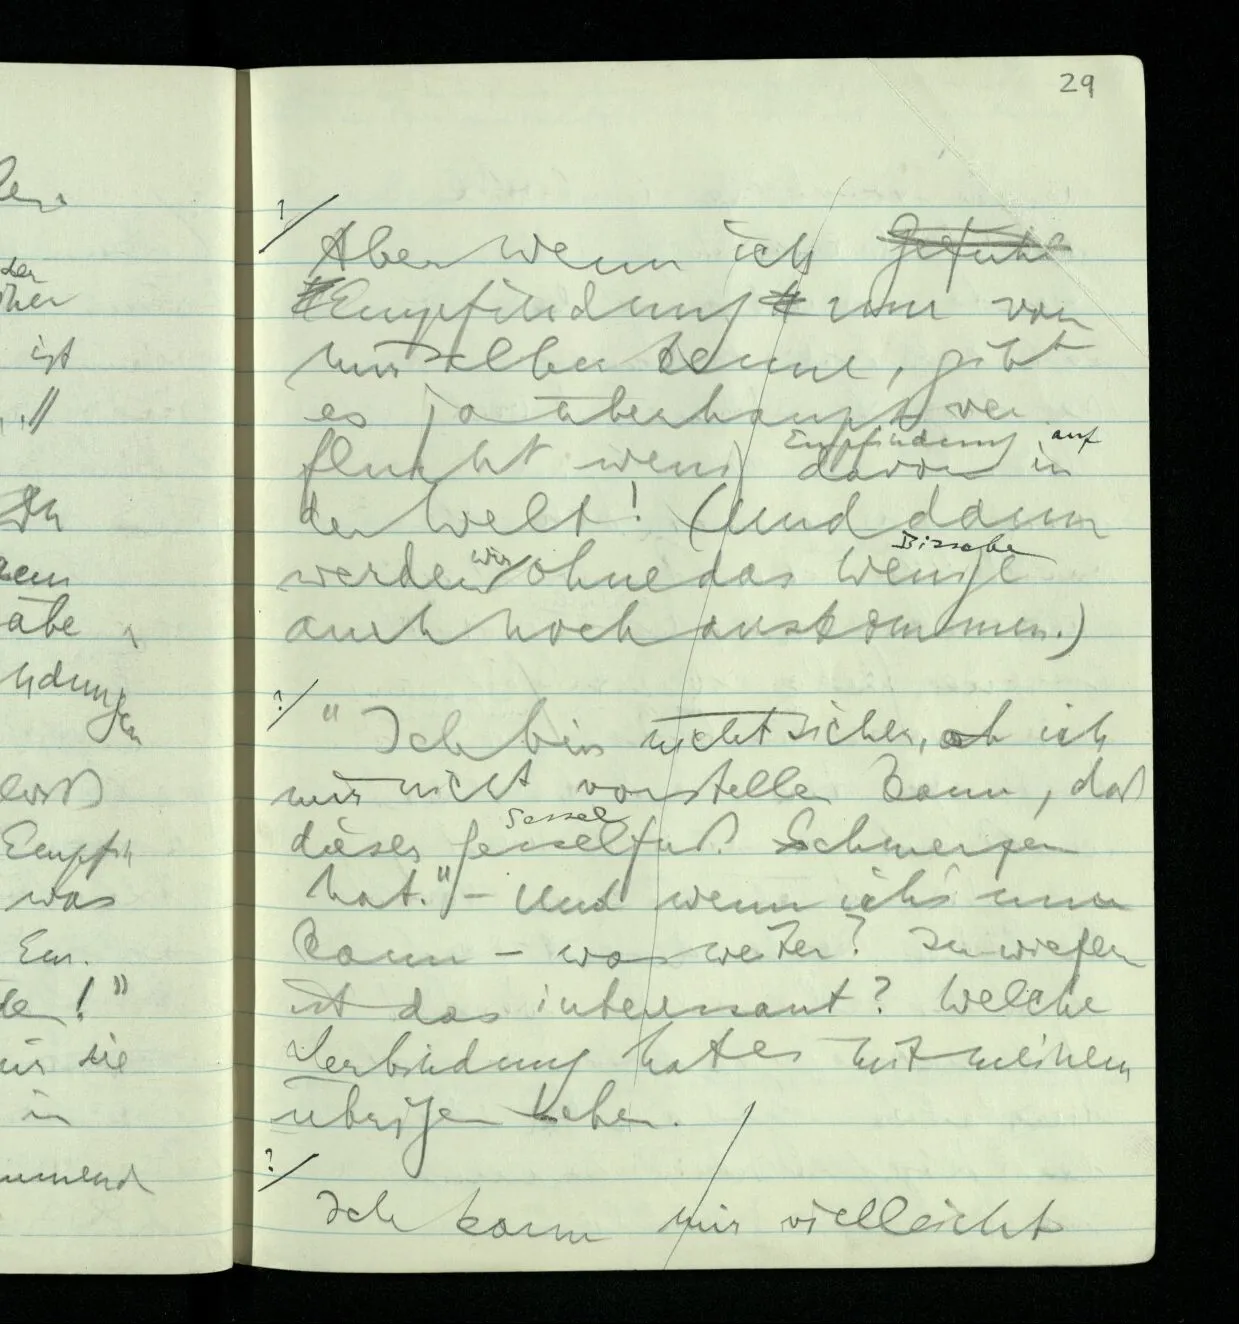 29
?/
Aber wenn ich Gefühl
Empfindung nur von
mir selber kenne, gibt
es ja überhaupt ver
flucht wenig davon in
Empfindung auf
der Welt! (Und dann
werden wir ohne das Wenige
Bisschen
auch noch auskommen.)
?/
"Ich bin nicht sicher, ob ich
mir nicht vorstellen kann, daß
dieser Sesselfuß Schmerzen
Sessel
hat." – Und wenn ich's nun
kann – was weiter? Inwiefern
ist das interessant? Welche
Verbindung hat es mit meinem
übrigen Leben.
?/
Ich kann mir vielleicht
der
ist
habe
ndungen
bloß
Empfin
was
Em.
de!"
für sie
in